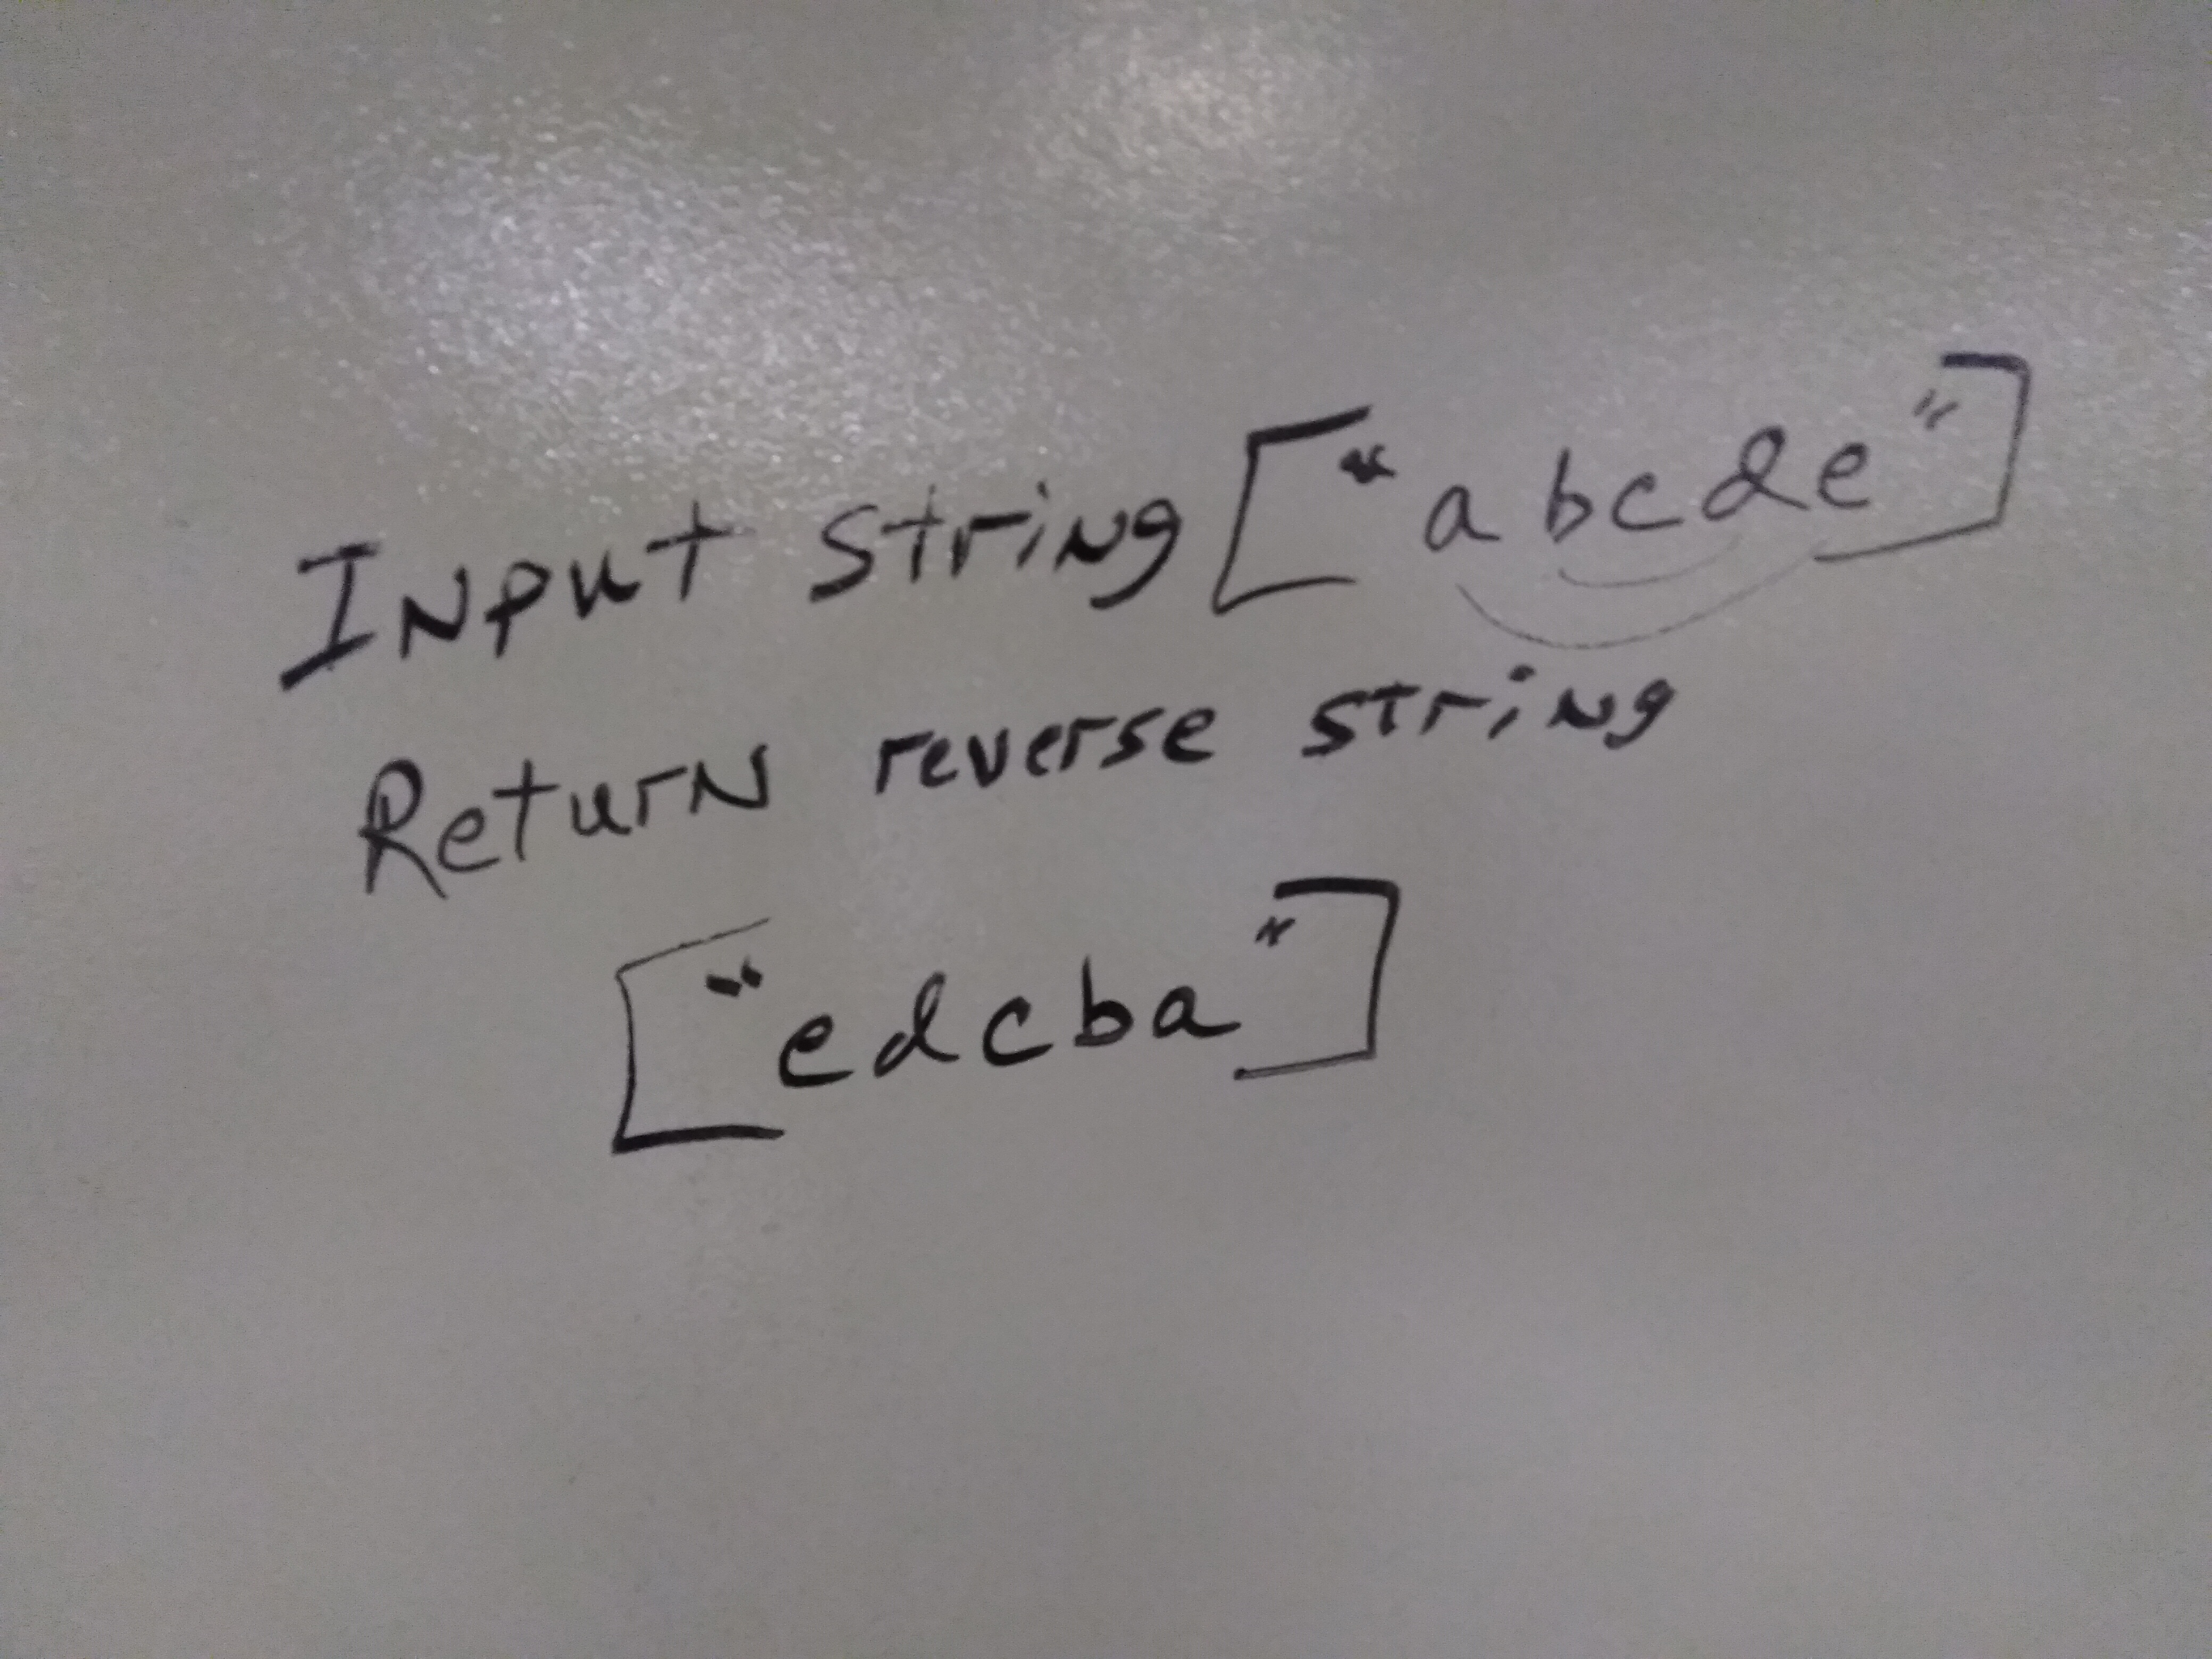 Input string ["abcde"]
Return reverse string
["edcba"]